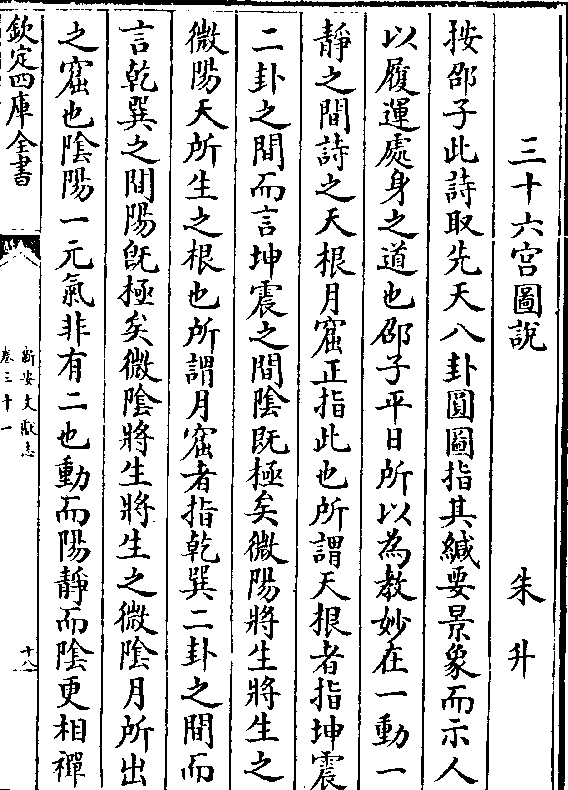 三十六宫圖說　朱升
按邵子此詩取先天八卦圓圖指其緘要景象而示人
以履運處身之道也邵子平日所以為教妙在一動一
靜之間詩之天根月窟正指此也所謂天根者指坤震
二卦之間而言坤震之間陰既極矣微陽將生將生之
微陽天所生之根也所謂月窟者指乾巽二卦之間而
言乾巽之間陽旣極矣微陰將生將生之微陰月所出
之窟也陰陽一元氣非有二也動而陽靜而陰更相禪
欽定四庫全書
新安文獻志
卷三十一
十八